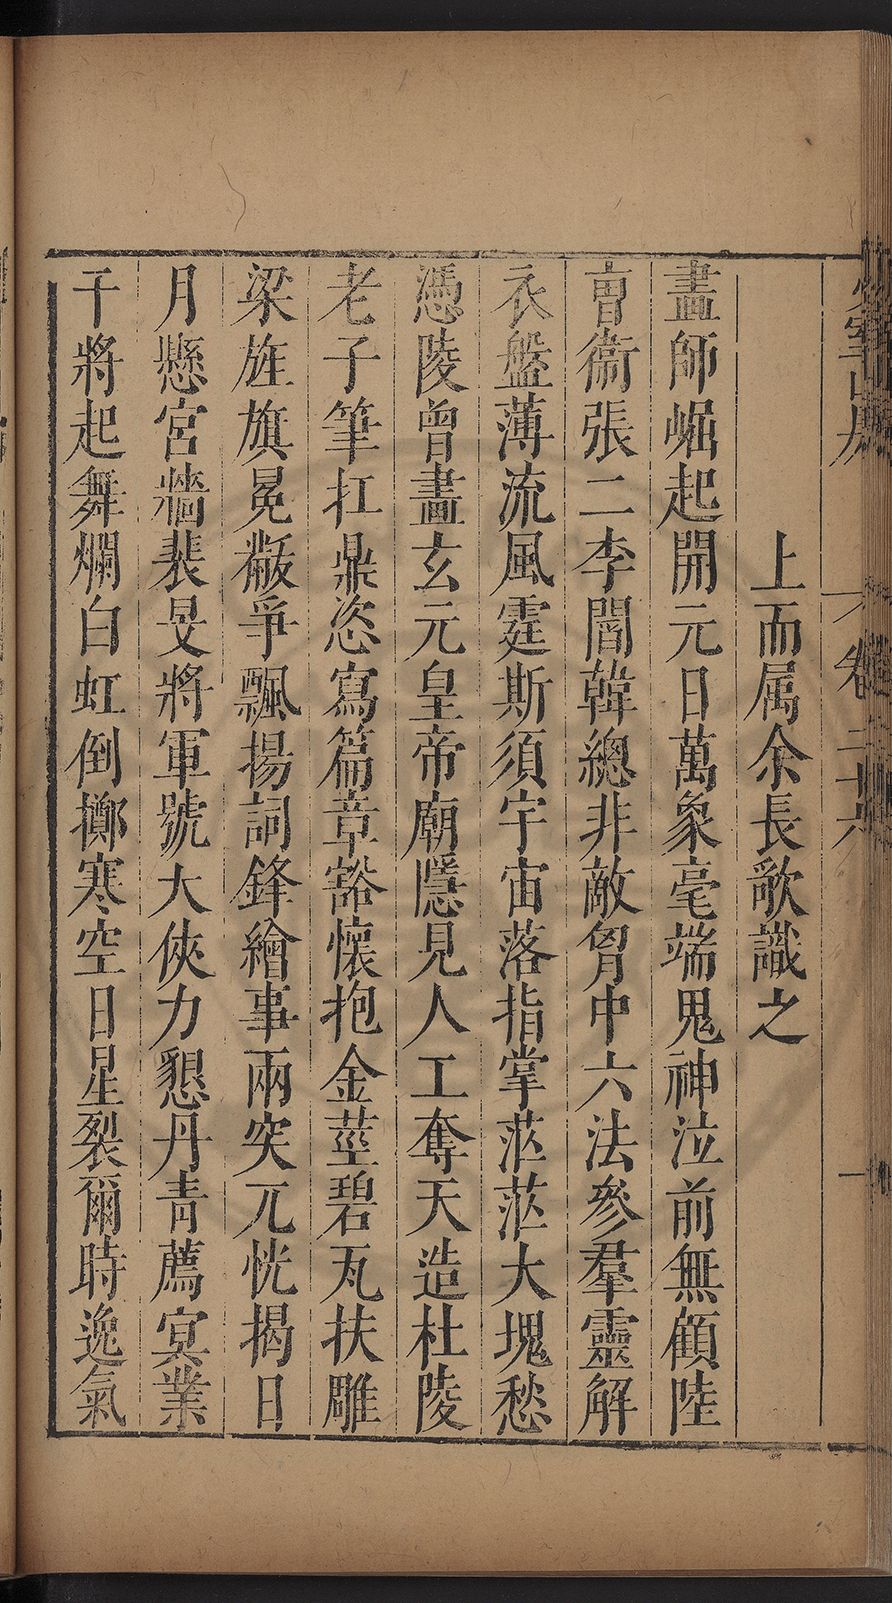 少室山房
卷二十六
一
上而属余長歌識之
畫師崛起開元日萬象毫端鬼神泣前無顧陸
曺衞張二李閻韓總非敵胷中六法參羣靈解
衣盤薄流風霆斯須宇宙落指掌茫茫大塊愁
憑陵曾畫玄元皇帝廟隱見人工奪天造杜陵
老子筆扛鼎恣寫篇章豁懷抱金莖碧瓦扶雕
梁旌旗冕黻爭飄揚詞鋒繪事兩突兀恍揭日
月懸宮牆裴旻將軍號大俠力懇丹青薦冥業
干將起舞爛白虹倒擲寒空日星裂爾時逸氣